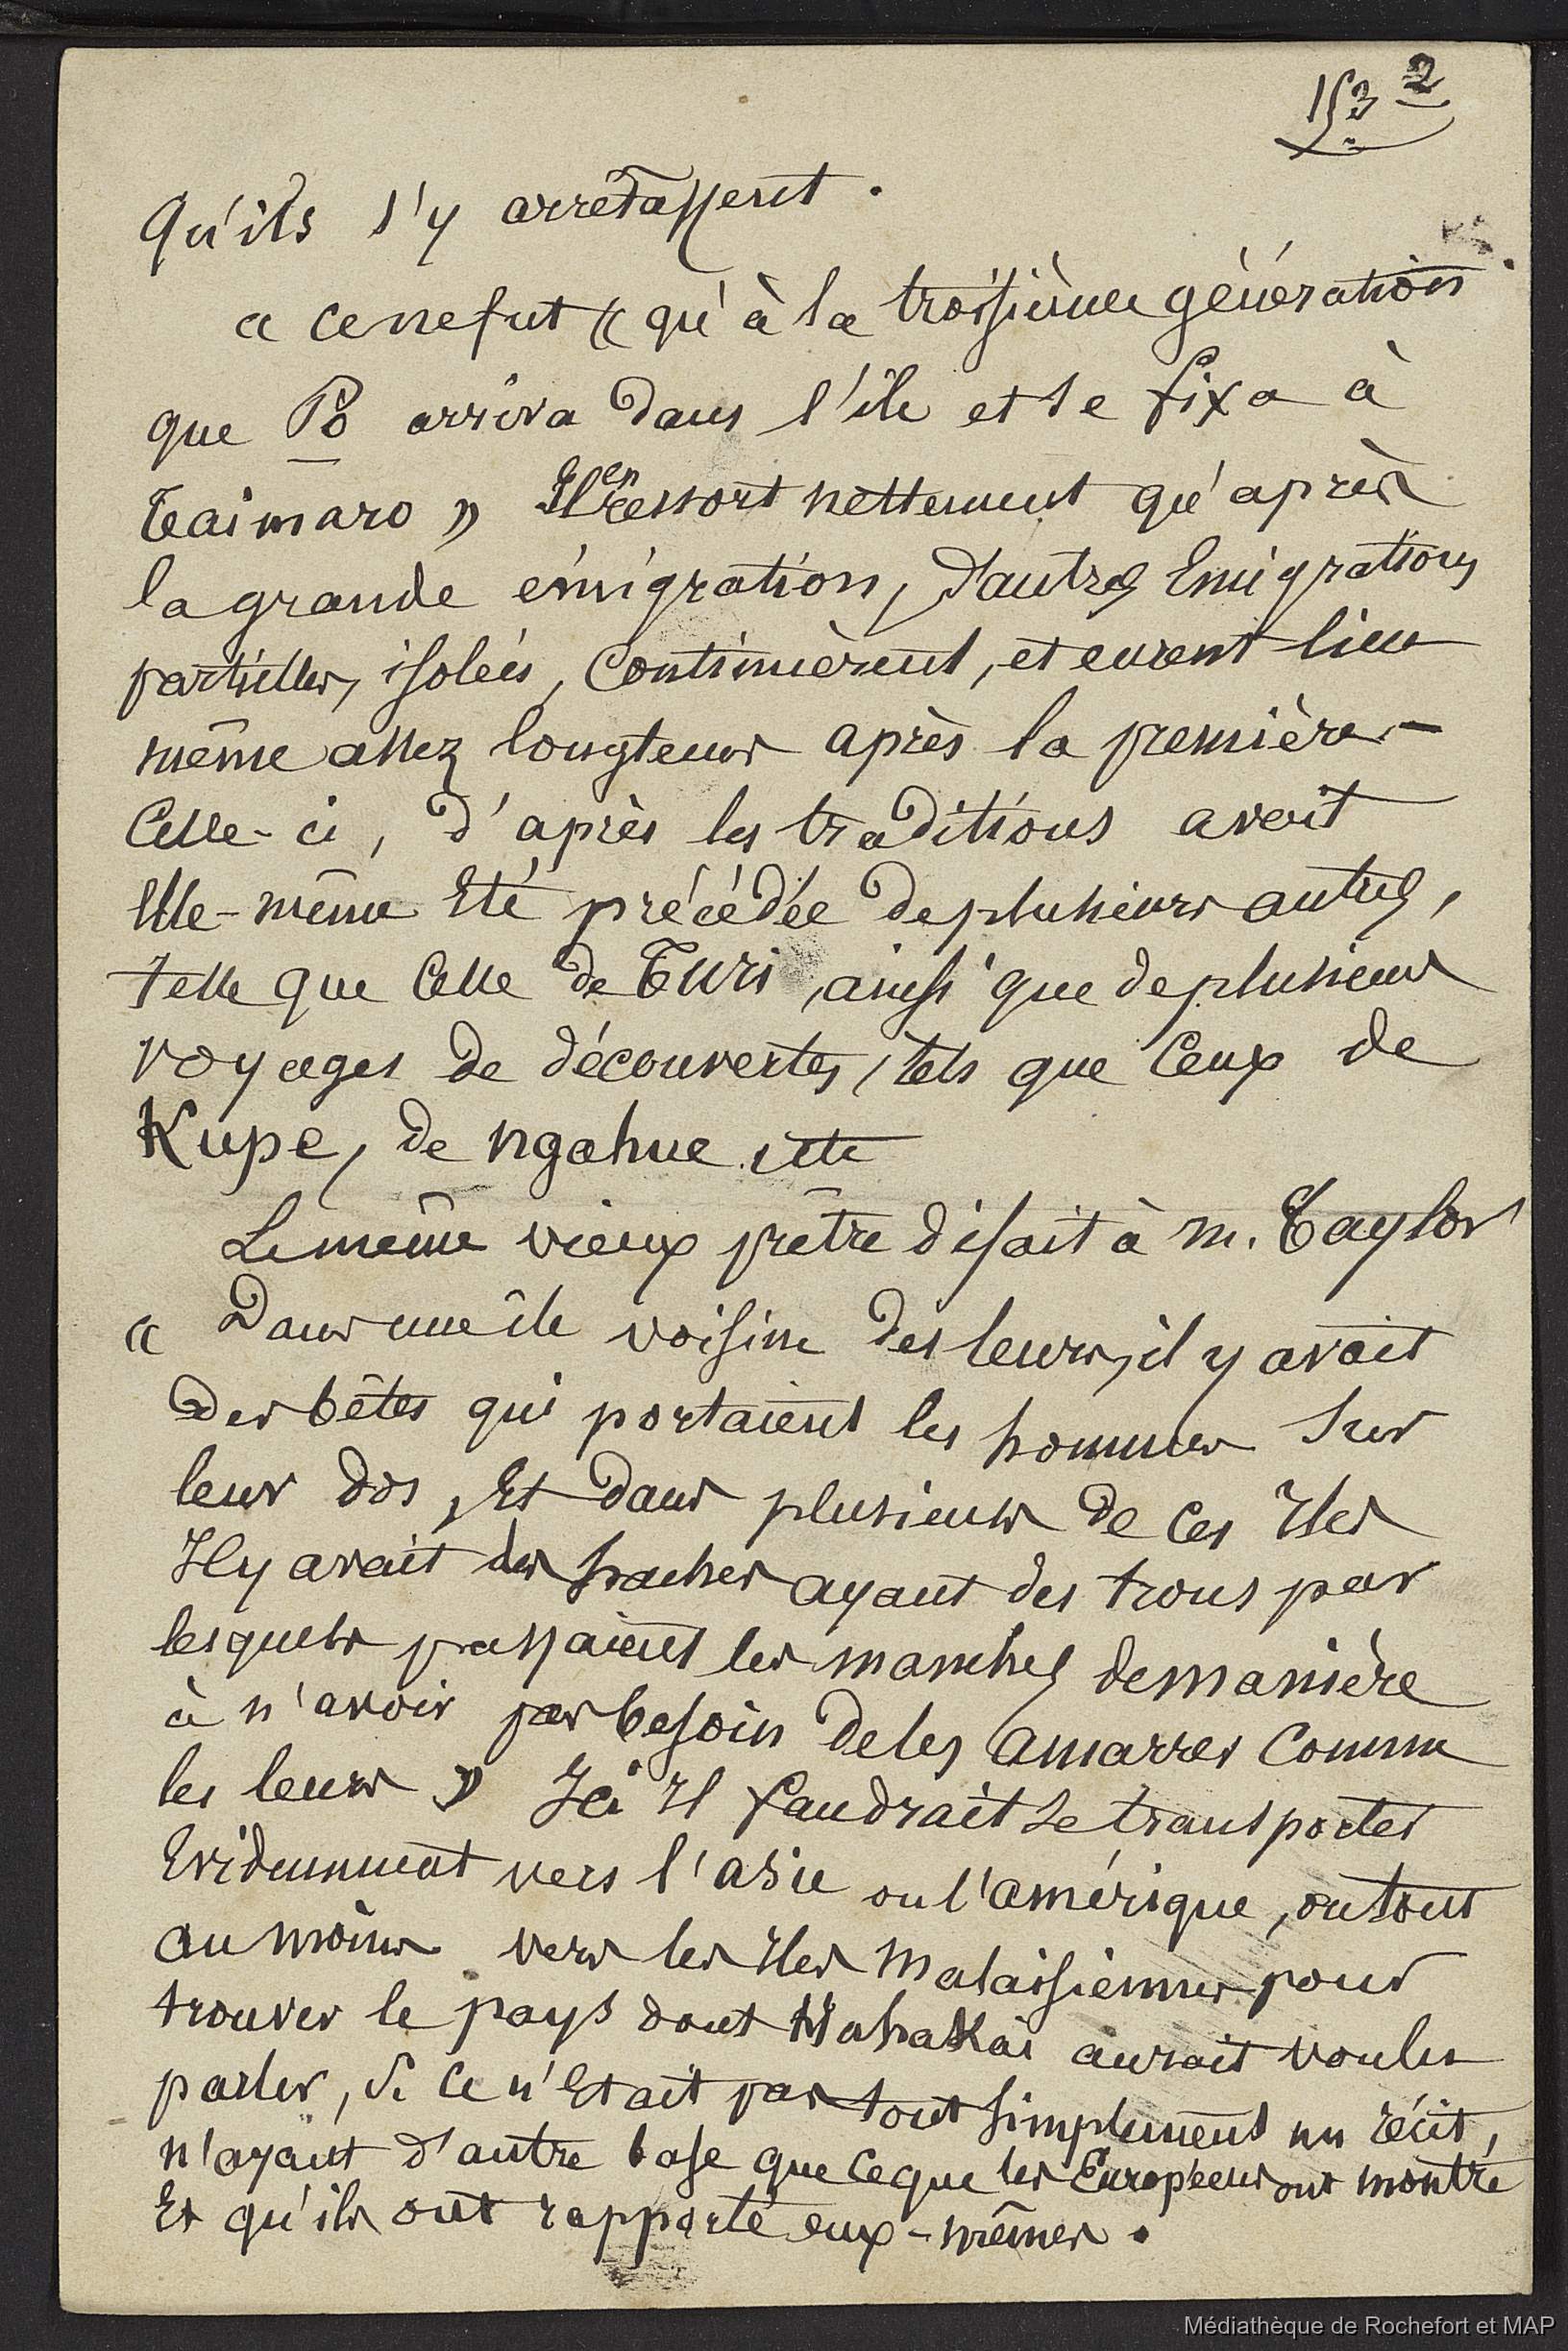 153 2
qu'ils s'y arrêtassent.
a ce ne fut « qu'à la troisième génération
que Po arriva dans l'île et se fixa à
Taimaro » Il en ressort nettement qu'après
la grande émigration, d'autres Emigrations
partielles, isolées, continuèrent, et eurent lieu
même assez longtems après la première –
Celle-ci, d'après les traditions avait
Elle-même Eté précédée de plusieurs autres,
telle que Celle de Turi, ainsi que de plusieurs
voyages de découvertes, tels que Ceux de
Kupe, de ngahue, etc
Le même vieux prêtre disait à m. Taylor
« Dans une île voisine des leurs, il y avait
des bêtes qui portaient les hommes sur
leur dos, Et dans plusieurs de ces Iles
Il y avait des haches ayant des trous par
lesquels passaient les manches de manière
à n'avoir pas besoin de les amarrer comme
les leurs » Ici Il faudrait se transporter
Evidemment vers l'asie ou l'amérique, ou tout
au moins vers les Iles Malaisiennes pour
trouver le pays dont Hahakai aurait voulu
parler, si ce n'Etait pas tout simplement un récit,
n'ayant d'autre base que ce que les Européens ont montré
Et qu'ils ont rapporté eux-mêmes.
Médiathèque de Rochefort et MAP